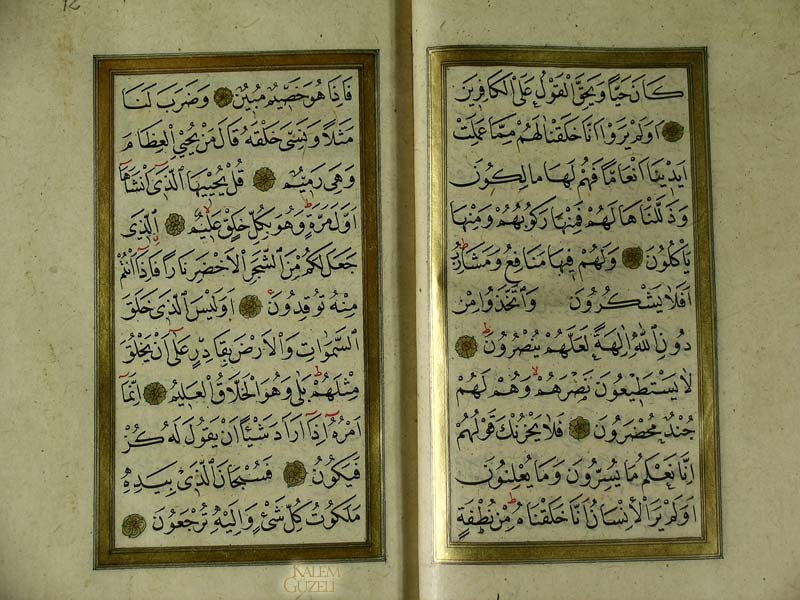 كَانَ حَيًّا وَيَحِقَّ الْقَوْلُ عَلَى الْكَافِرِينَ
اَوَلَمْ يَرَوْا اَنَّا خَلَقْنَا لَهُمْ مِمَّا عَمِلَتْ
اَيْدِينَا اَنْعَامًا فَهُمْ لَهَا مَالِكُونَ
وَذَلَّلْنَاهَا لَهُمْ فَمِنْهَا رَكُوبُهُمْ وَمِنْهَا
يَأْكُلُونَ وَلَهُمْ فِيهَا مَنَافِعُ وَمَشَارِبُ
اَفَلَا يَشْكُرُونَ وَاتَّخَذُوا مِنْ
دُونِ اللّٰهِ اٰلِهَةً لَعَلَّهُمْ يُنْصَرُونَ
لَا يَسْتَطِيعُونَ نَصْرَهُمْ وَهُمْ لَهُمْ
جُنْدٌ مُحْضَرُونَ فَلَا يَحْزُنْكَ قَوْلُهُمْ
اِنَّا نَعْلَمُ مَا يُسِرُّونَ وَمَا يُعْلِنُونَ
اَوَلَمْ يَرَ الْاِنْسَانُ اَنَّا خَلَقْنَاهُ مِنْ نُطْفَةٍ
فَاِذَا هُوَ خَصِيمٌ مُبِينٌ وَضَرَبَ لَنَا
مَثَلًا وَنَسِيَ خَلْقَهُ قَالَ مَنْ يُحْيِي الْعِظَامَ
وَهِيَ رَمِيمٌ قُلْ يُحْيِيهَا الَّذِي اَنْشَاَهَا
اَوَّلَ مَرَّةٍ وَهُوَ بِكُلِّ خَلْقٍ عَلِيمٌ اَلَّذِي
جَعَلَ لَكُمْ مِنَ الشَّجَرِ الْاَخْضَرِ نَارًا فَاِذَا اَنْتُمْ
مِنْهُ تُوقِدُونَ اَوَلَيْسَ الَّذِي خَلَقَ
السَّمٰوَاتِ وَالْاَرْضَ بِقَادِرٍ عَلٰى اَنْ يَخْلُقَ
مِثْلَهُمْ بَلٰى وَهُوَ الْخَلَّاقُ الْعَلِيمُ اِنَّمَا
اَمْرُهُ اِذَا اَرَادَ شَيْئًا اَنْ يَقُولَ لَهُ كُنْ
فَيَكُونُ فَسُبْحَانَ الَّذِي بِيَدِهِ
مَلَكُوتُ كُلِّ شَيْءٍ وَاِلَيْهِ تُرْجَعُونَ
KALEM
GÜZELİ